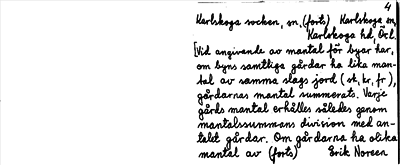 4
Karlskoga socken, sn, (forts) Karlskoga sn,
Karlskoga hd, Öcl.
[Vid angivande av mantal för byar har,
om byns samtliga gårdar ha lika man-
tal av samma slags jord (sk, kr, fr),
gårdarnas mantal summerats. Varje
gårds mantal erhålles således genom
mantalssummans division med an-
talet gårdar. Om gårdarna ha olika
mantal av (forts) Erik Noreen